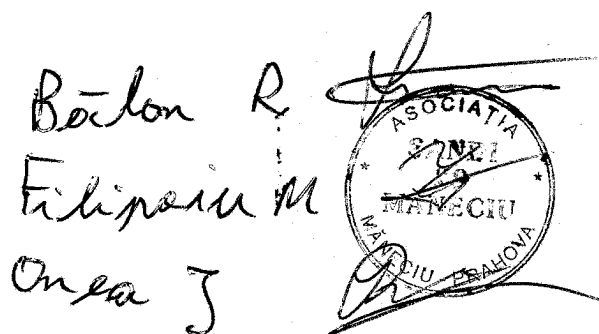 Bălon R.
Filipoiu M
Onea J
ASOCIAȚIA
MĂNECIU
MĂNECIU PRAHOVA